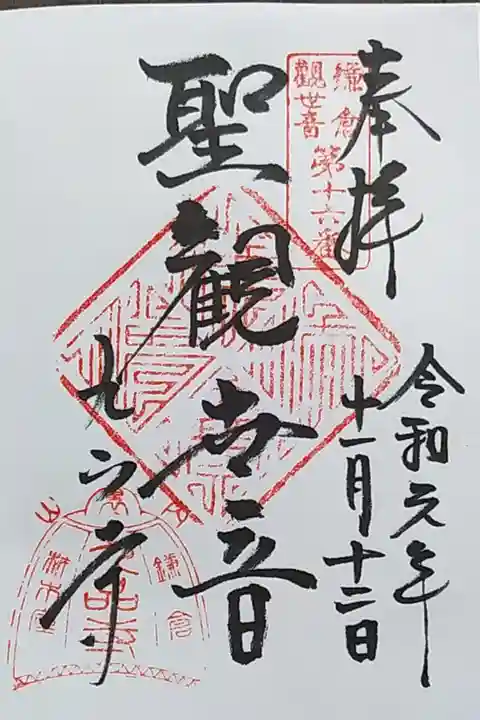 奉拝
鎌倉
観世音
第十六番
令和元年
十一月十二日
聖観世音
九品寺
鎌倉
材木座